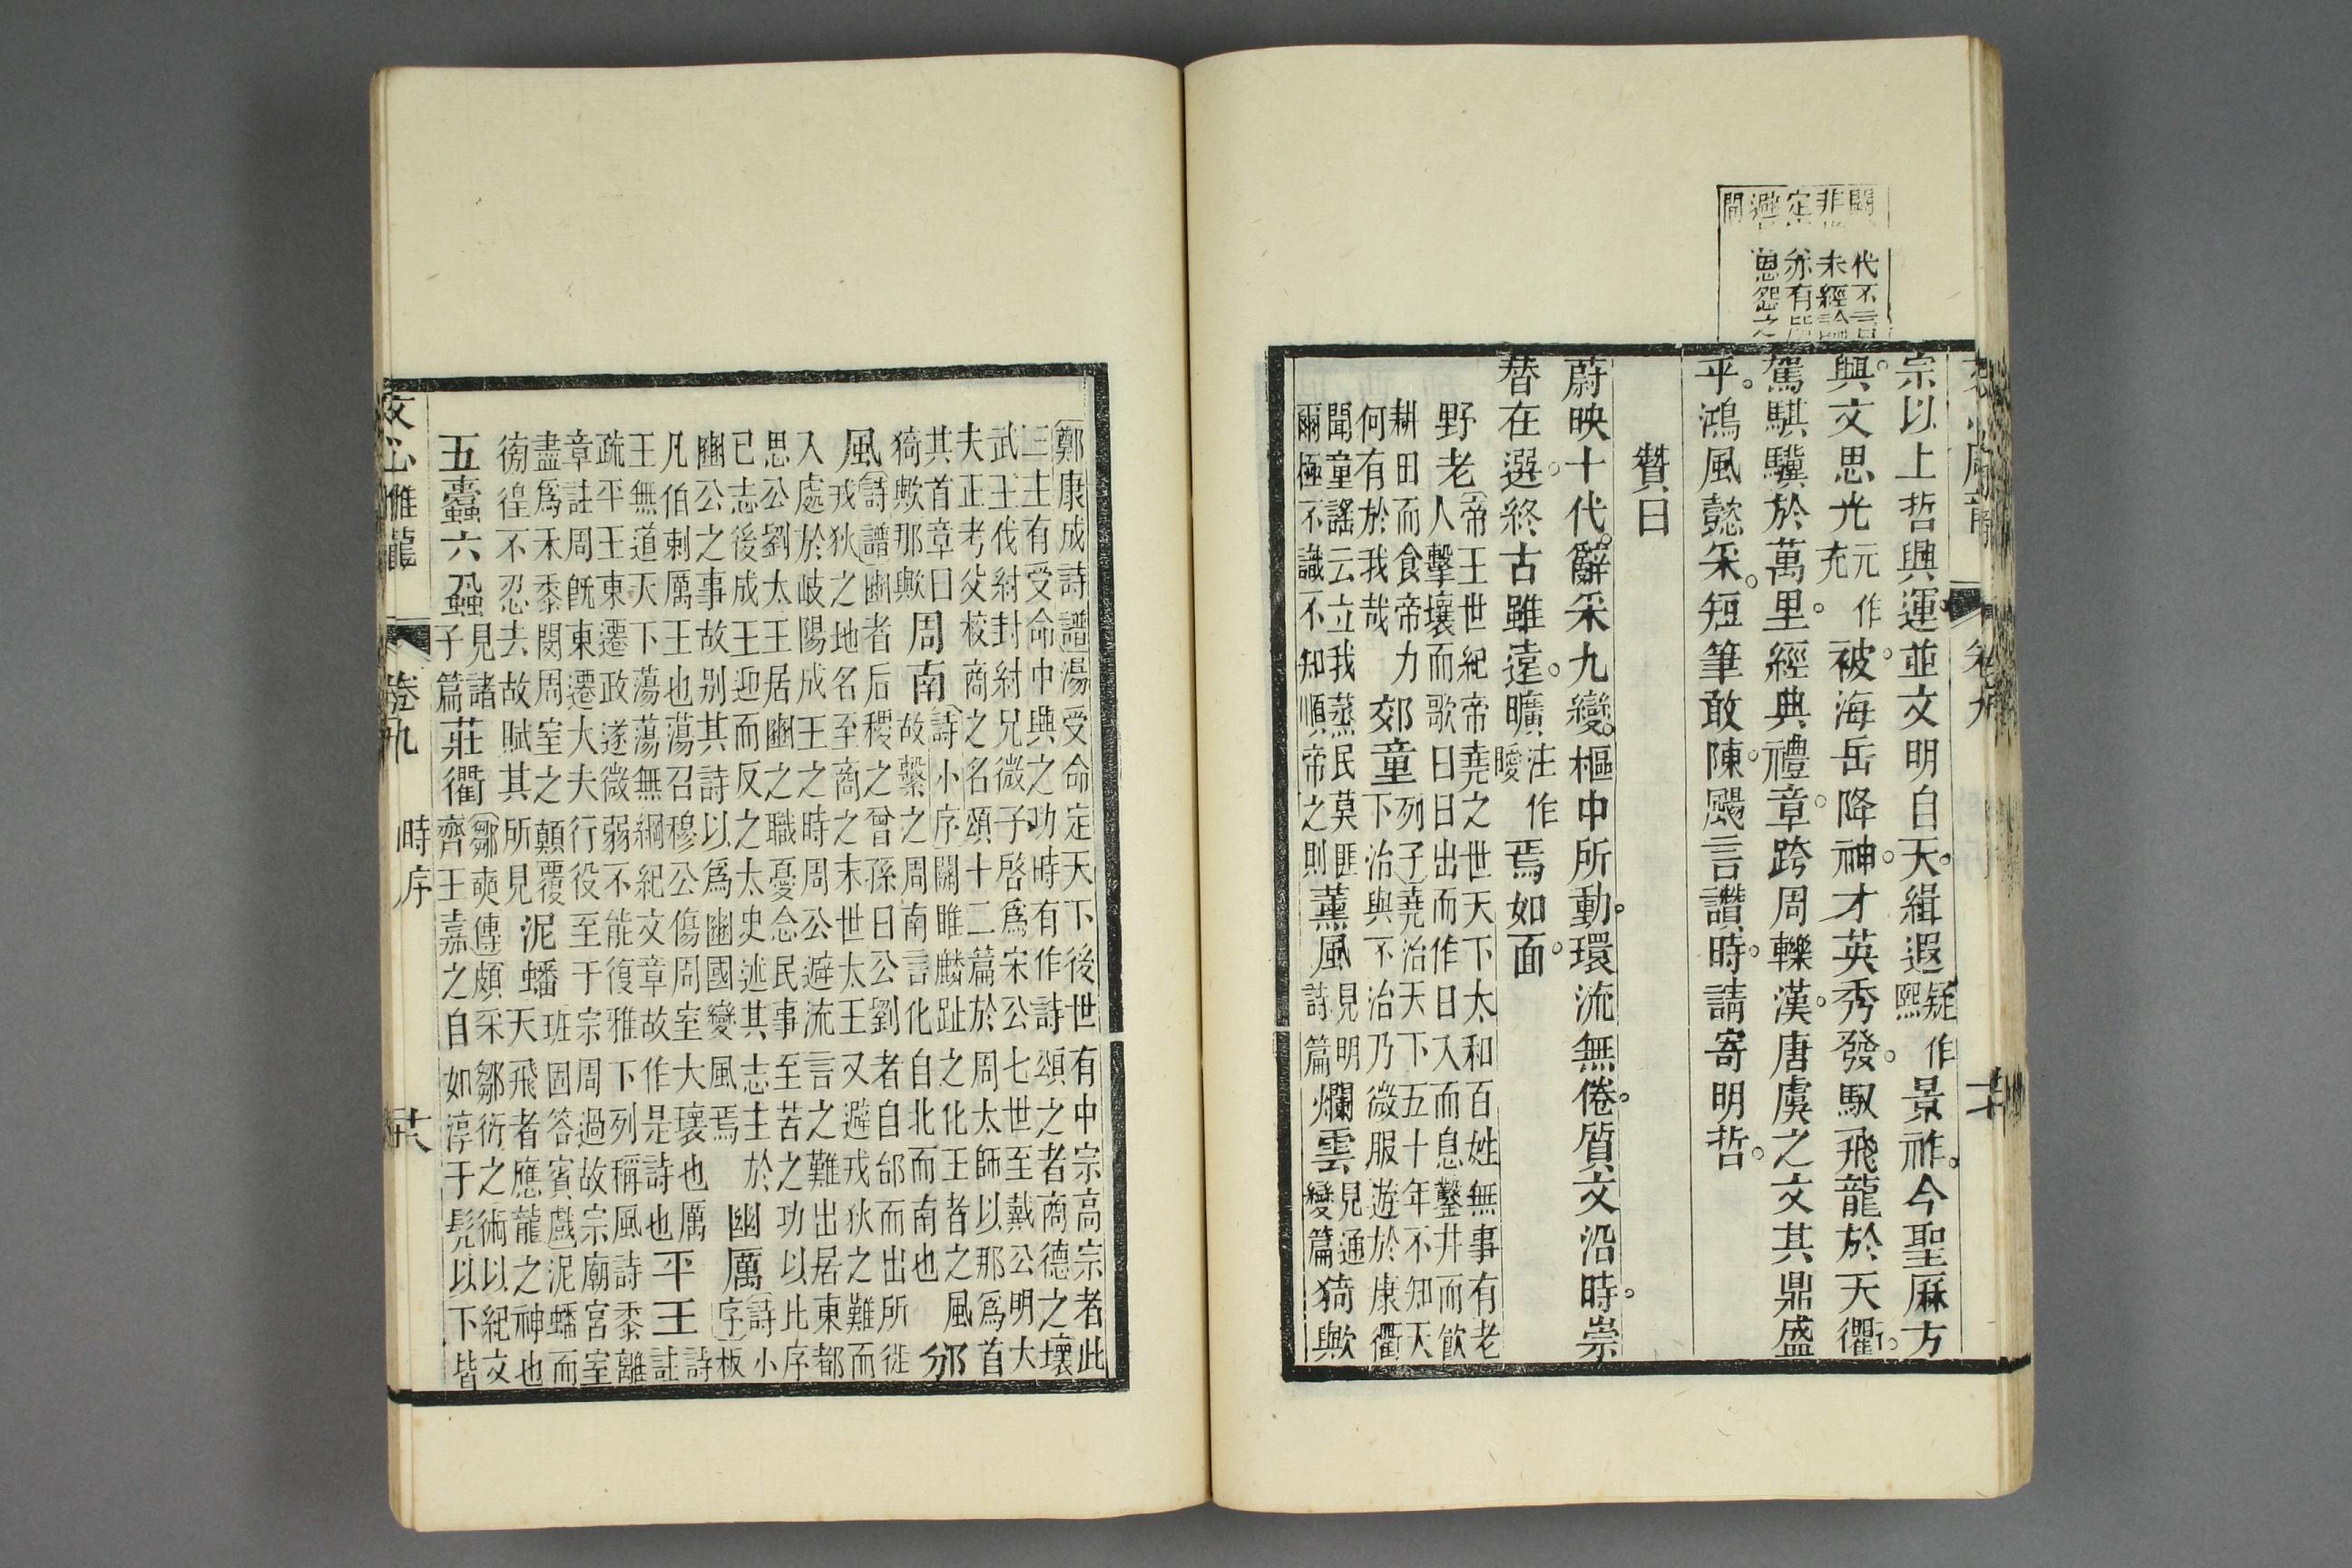 闕代不言
非未經論
定亦有所
避恩怨之
間
卷九
宗以上哲興運並文明自天緝遐疑作熙景祚今聖厤方
興文思光元作充被海岳降神才英秀發馭飛龍於天衢
駕騏驥於萬里經典禮章跨周轢漢唐虞之文其鼎盛
乎鴻風懿采短筆敢陳颺言讚時請寄明哲
贊曰
蔚映十代辭采九變樞中所動環流無倦質文沿時崇
替在選終古雖遠曠汪作曖焉如面
野老帝王世紀帝堯之世天下太和百姓無事有老人擊壤而歌曰日出而作日入而息鑿井而飲
耕田而食帝力何有於我哉郊童列子堯治天下五十年不知天下治與不治乃微服遊於康衢
聞童謠云立我蒸民莫匪爾極不識不知順帝之則薰風見明詩篇爛雲見通變篇猗歟
鄭康成詩譜湯受命定天下後世有中宗高宗者此三主有受命中興之功時有作詩頌之者商德之壞
武王伐紂封紂兄微子啓爲宋公七世至戴公明大夫正考父校商之名頌十二篇於周太師以那爲首
其首章曰猗歟那歟周南詩小序關雎麟趾之化王者之風故繫之周南言化自北而南也邠
風詩譜豳者后稷之曾孫曰公劉者自邰而出所徙戎狄之地名至商之末世太王又避戎狄之難而
入處於岐陽成王之時周公避流言之難出居東都思公劉太王居豳之職憂念民事至苦之功以比序
已志後成王迎而反之太史述其志主於豳公之事故别其詩以爲豳國變風焉幽厲詩小序板
凡伯刺厲王也蕩召穆公傷周室大壞也厲王無道天下蕩蕩無綱紀文章故作是詩也平王詩註
疏平王東遷政遂微弱不能復雅下列稱風詩黍離章註周旣東遷大夫行役至于宗周過故宗廟宮室
盡爲禾黍閔周室之顛覆徬徨不忍去故賦其所見泥蟠班固答賓戲泥蟠而天飛者應龍之神也
五蠹六蝨見諸子篇莊衢鄒奭傳頗采鄒衍之術以紀文齊王嘉之自如淳于髡以下皆
文心雕龍 卷九 時序 卄六